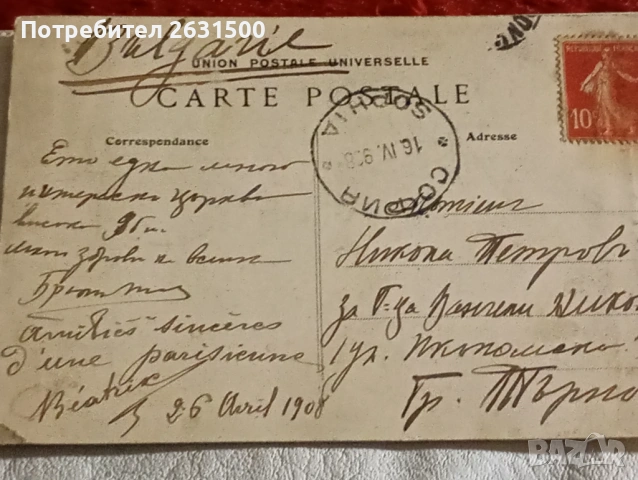 Потребител 2631500
Bulgarie
UNION POSTALE UNIVERSELLE
CARTE POSTALE
Correspondance
Adresse
SOPHIA
16.IV.908
СОФИЯ
10c
Ето една много
интересна църква
висока 96 м.
много здраве на всички
amitiés sincères
d'une parisienne
Béatrix
26 Avril 1908
Monsieur
Никола Петровъ
за Г-да Вангели Дико
ул.
Гр. Търно
BAZAR